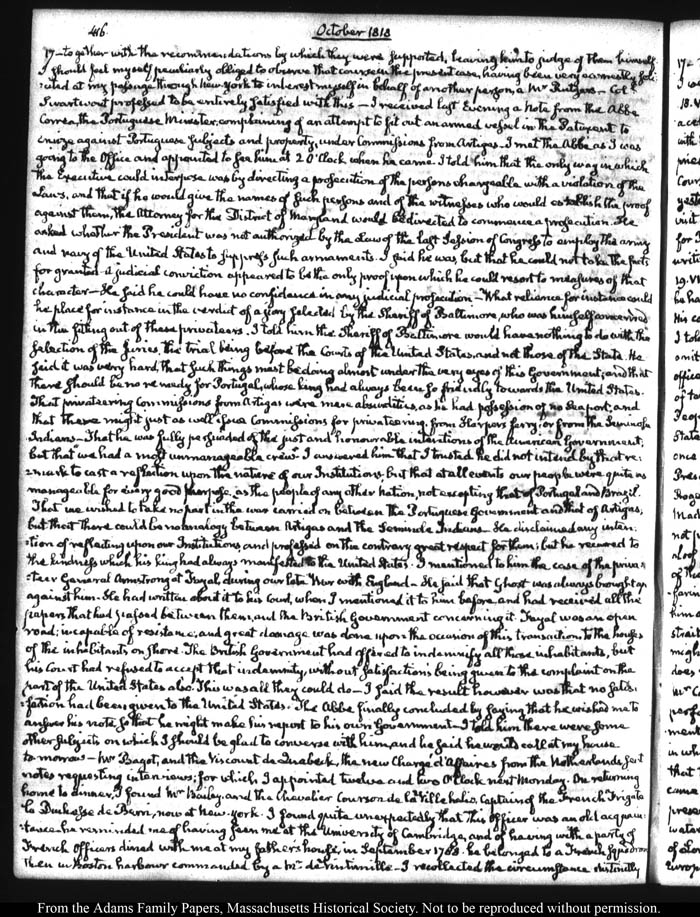 416.
October 1818
17 — together with the recommendations by which they were supported, leaving him to judge of them himself.
I should feel myself peculiarly obliged to observe that course in the present case, having been very earnestly soli-
cited at my passage through New-York to interest myself in behalf of another person, a Mr Rutgers — Coll
Swartwout professed to be entirely satisfied with this — I received last Evening a Note from the Abbe
Correa, the Portuguese Minister, complaining of an attempt to fit out an armed vessel in the Patuxent to
cruize against Portuguese subjects and property, under Commissions from Artigas. I met the Abbe as I was
going to the Office and appointed to see him at 2 O'Clock when he came. I told him that the only way in which
the Executive could interpose was by directing a prosecution of the persons chargeable with a violation of the
Laws, and that if he would give the names of such persons and of the witnesses who would establish the proof
against them, the Attorney for the District of Maryland would be directed to commence a prosecution. He
asked whether the President was not authorized by the Law of the last Session of Congress to employ the army
and navy of the United States to suppress such armaments. I said he was, but that he could not take the facts
for granted. A judicial conviction appeared to be the only proof upon which he could resort to measures of that
character — He said he could have no confidence in any judicial prosecution — What reliance for instance could
he place for instance in the verdict of a jury selected by the Sheriff of Baltimore, who was himself concerned
in the fitting out of these privateers. I told him the Sheriff of Baltimore would have nothing to do with the
selection of the Juries, the trial being before the Courts of the United States, and not those of the State. He
said it was very hard, that such things must be doing almost under the very eyes of this Government, and that
there should be no remedy for Portugal, whose king had always been so friendly towards the United States.
That privateering Commissions from Artigas were mere absurdities, as he had possession of no Seaport; and
that there might just as well issue Commissions for privateering from Harpers ferry, or from the Seminole
Indians — That he was fully persuaded of the just and honourable intentions of the American Government;
but that we had a most unmanageable crew. I answered him that I trusted he did not intend by that re-
mark to cast a reflection upon the nature of our Institutions, but that at all events our people were quite as
manageable for every good purpose, as the people of any other nation, not excepting that of Portugal and Brazil.
That we wished to take no part in the war carried on between the Portuguese Government and that of Artigas,
but that there could be no analogy between Artigas and the Seminole Indians. He disclaimed any inten-
tion of reflecting upon our Institutions, and professed on the contrary great respect for them; but he recurred to
the kindness which his king had always manifested to the United States. I mentioned to him the case of the priva-
teer General Armstrong at Fayal, during our late War with England — He said that Ghost was always brought up
against him. He had written about it to his Court, when I mentioned it to him before, and had received all the
papers that had passed between them, and the British Government concerning it. Fayal was an open
road; incapable of resistance, and great damage was done upon the occasion of this transaction to the houses
of the inhabitants on shore. The British Government had offered to indemnify all those inhabitants, but
his Court had refused to accept that indemnity, without satisfactions being given to the complaint on the
part of the United States also. This was all they could do — I said the result however was that no satis-
faction had been given to the United States. The Abbe finally concluded by saying that he wished me to
answer his note, so that he might make his report to his own Government — I told him there were some
other subjects on which I should be glad to converse with him, and he said he would call at my house
to morrow — Mr Bagot, and the Viscount de Quabeck, the new Chargé d'Affaires from the Netherlands, sent
notes requesting interviews; for which I appointed twelve and two O'Clock next Monday. On returning
home to dinner, I found Mr Bailey, and the Chevalier Courson de la Ville helio, Captain of the French Frigate
la Duchesse de Berri, now at New-York. I found quite unexpectedly that this officer was an old acquain-
tance. he reminded me of having seen me at the University of Cambridge, and of having with a party of
French Officers dined with me at my father's house, in September 1788. he belonged to a French Squadron
then in Boston harbour commanded by a Mr de — I recollected the circumstance distinctly
From the Adams Family Papers, Massachusetts Historical Society. Not to be reproduced without permission.